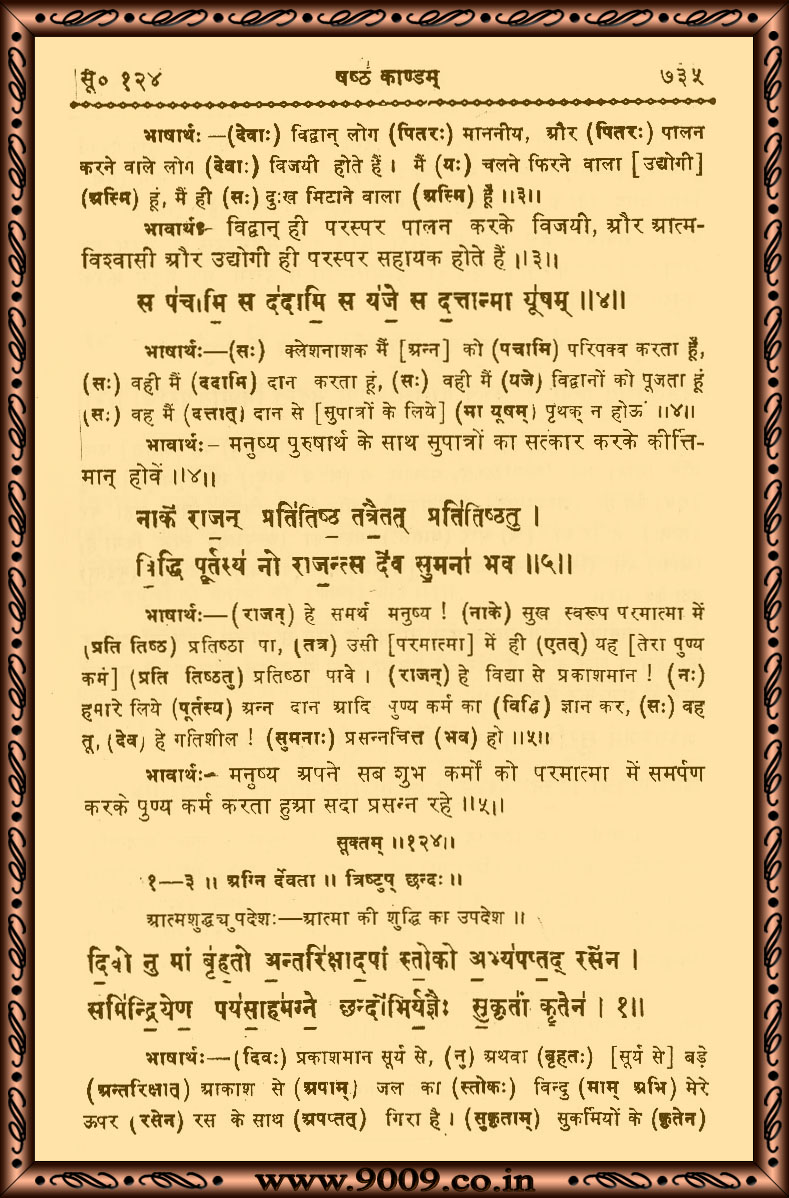 सू० १२४ षष्ठं काण्डम् ७३५
भाषार्थः—(देवाः) विद्वान् लोग (पितरः) माननीय, और (पितरः) पालन
करने वाले लोग (देवाः) विजयी होते हैं । मैं (यः) चलने फिरने वाला [उद्योगी]
(अस्मि) हूं, मैं ही (सः) दुःख मिटाने वाला (अस्मि) हूँ ॥३॥
भावार्थः- विद्वान् ही परस्पर पालन करके विजयी, और आत्म-
विश्वासी और उद्योगी ही परस्पर सहायक होते हैं ॥३॥
स प॑चामि॒ स द॑दामि॒ स य॑जे॒ स द॒त्तान्मा यू॑षम् ॥४॥
भाषार्थः—(सः) क्लेशनाशक मैं [अन्न] को (पचामि) परिपक्व करता हूँ,
(सः) वही मैं (ददामि) दान करता हूं, (सः) वही मैं (यजे) विद्वानों को पूजता हूं
(सः) वह मैं (दत्तात्) दान से [सुपात्रों के लिये] (मा यूषम्) पृथक् न होऊं ॥४॥
भावार्थः- मनुष्य पुरुषार्थ के साथ सुपात्रों का सत्कार करके कीर्त्ति-
मान् होवें ॥४॥
नाके॑ राज॒न् प्रति॑तिष्ठ॒ तत्रै॒तत् प्रति॑तिष्ठतु ।
वि॒द्धि पू॒र्तस्य॑ नो राज॒न्त्स दे॑व सु॒मना॑ भव ॥५॥
भाषार्थः—(राजन्) हे समर्थ मनुष्य ! (नाके) सुख स्वरूप परमात्मा में
(प्रति तिष्ठ) प्रतिष्ठा पा, (तत्र) उसी [परमात्मा] में ही (एतत्) यह [तेरा पुण्य
कर्म] (प्रति तिष्ठतु) प्रतिष्ठा पावे । (राजन्) हे विद्या से प्रकाशमान ! (नः)
हमारे लिये (पूर्तस्य) अन्न दान आदि पुण्य कर्म का (विद्धि) ज्ञान कर, (सः) वह
तू, (देव) हे गतिशील ! (सुमनाः) प्रसन्नचित्त (भव) हो ॥५॥
भावार्थः- मनुष्य अपने सब शुभ कर्मों को परमात्मा में समर्पण
करके पुण्य कर्म करता हुआ सदा प्रसन्न रहे ॥५॥
सूक्तम् ॥१२४॥
१—३ ॥ अग्नि र्देवता ॥ त्रिष्टुप् छन्दः ॥
आत्मशुद्ध्युपदेशः—आत्मा की शुद्धि का उपदेश ॥
दि॒वो नु मां बृ॑ह॒तो अ॒न्तरि॑क्षाद॒पां स्तो॒को अ॒भ्य॑पप्त॒द् रसे॑न ।
समि॑न्द्रि॒येण॒ पय॑सा॒हम॑ग्ने॒ छन्दो॑भिर्य॒ज्ञैः सु॒कृतां॑ कृ॒तेन॑ । १॥
भाषार्थः—(दिवः) प्रकाशमान सूर्य से, (नु) अथवा (बृहतः) [सूर्य से] बड़े
(अन्तरिक्षात्) आकाश से (अपाम्) जल का (स्तोकः) विन्दु (माम् अभि) मेरे
ऊपर (रसेन) रस के साथ (अपप्तत्) गिरा है । (सुकृताम्) सुकर्मियों के (कृतेन)
www.9009.co.in